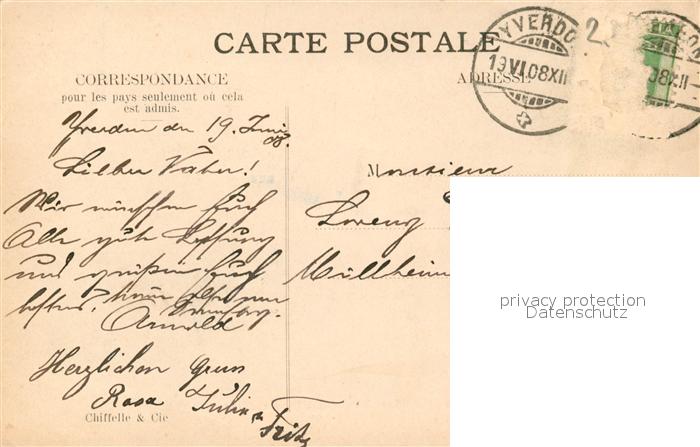 CARTE POSTALE
CORRESPONDANCE
pour les pays seulement où cela
est admis.
ADRESSE
YVERDON
19 VI 08 XII
2
08 XII
Yverdon den 19. Juni
08.
Lieber Vater!
Wir wünschen Euch
Alle gute Hoffnung
und grüßen Euch
Arnold
Herzlichen Gruss
Rosa Julie
Fritz
Chiffelle & Cie
Monsieur
Lorenz
Müllheim
privacy protection
Datenschutz